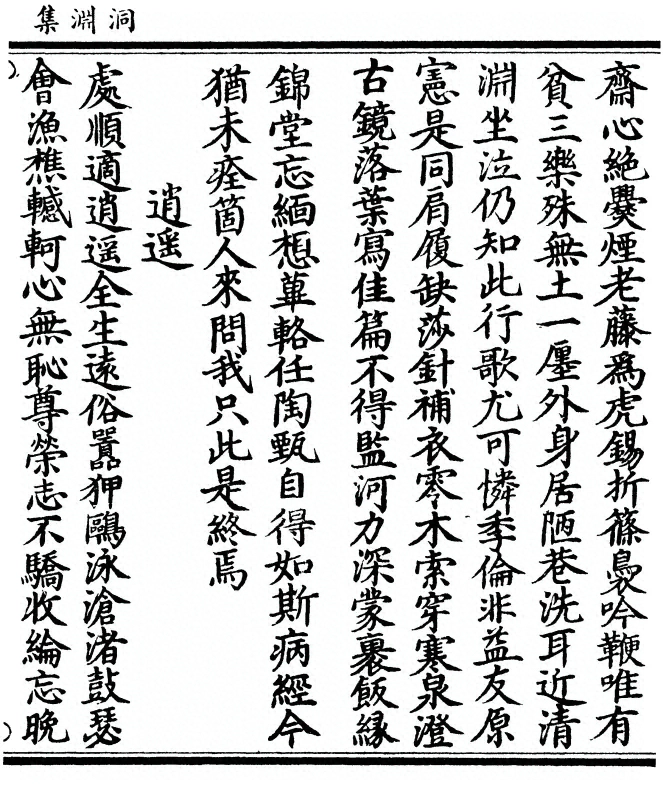 洞淵集
齋心絶爨煙老藤爲虎錫折篠裊吟鞭唯有
貧三樂殊無土一廛外身居陋巷洗耳近清
淵坐泣仍知此行歌尤可憐季倫非益友原
憲是同肩履缺莎針補衣零木索穿寒泉澄
古鏡落葉寫佳篇不得監河力深蒙裹飯縁
錦堂忘緬想蓽輅任陶甄自得如斯病經今
猶未痊箇人來問我只此是終焉
逍遥
處順適逍遥全生逺俗囂狎鷗泳滄渚鼓瑟
會漁樵轗軻心無恥尊榮志不驕收綸忘晚